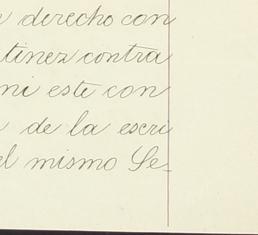 derecho con
tinez contra
ni este con
de la escri
el mismo Se-